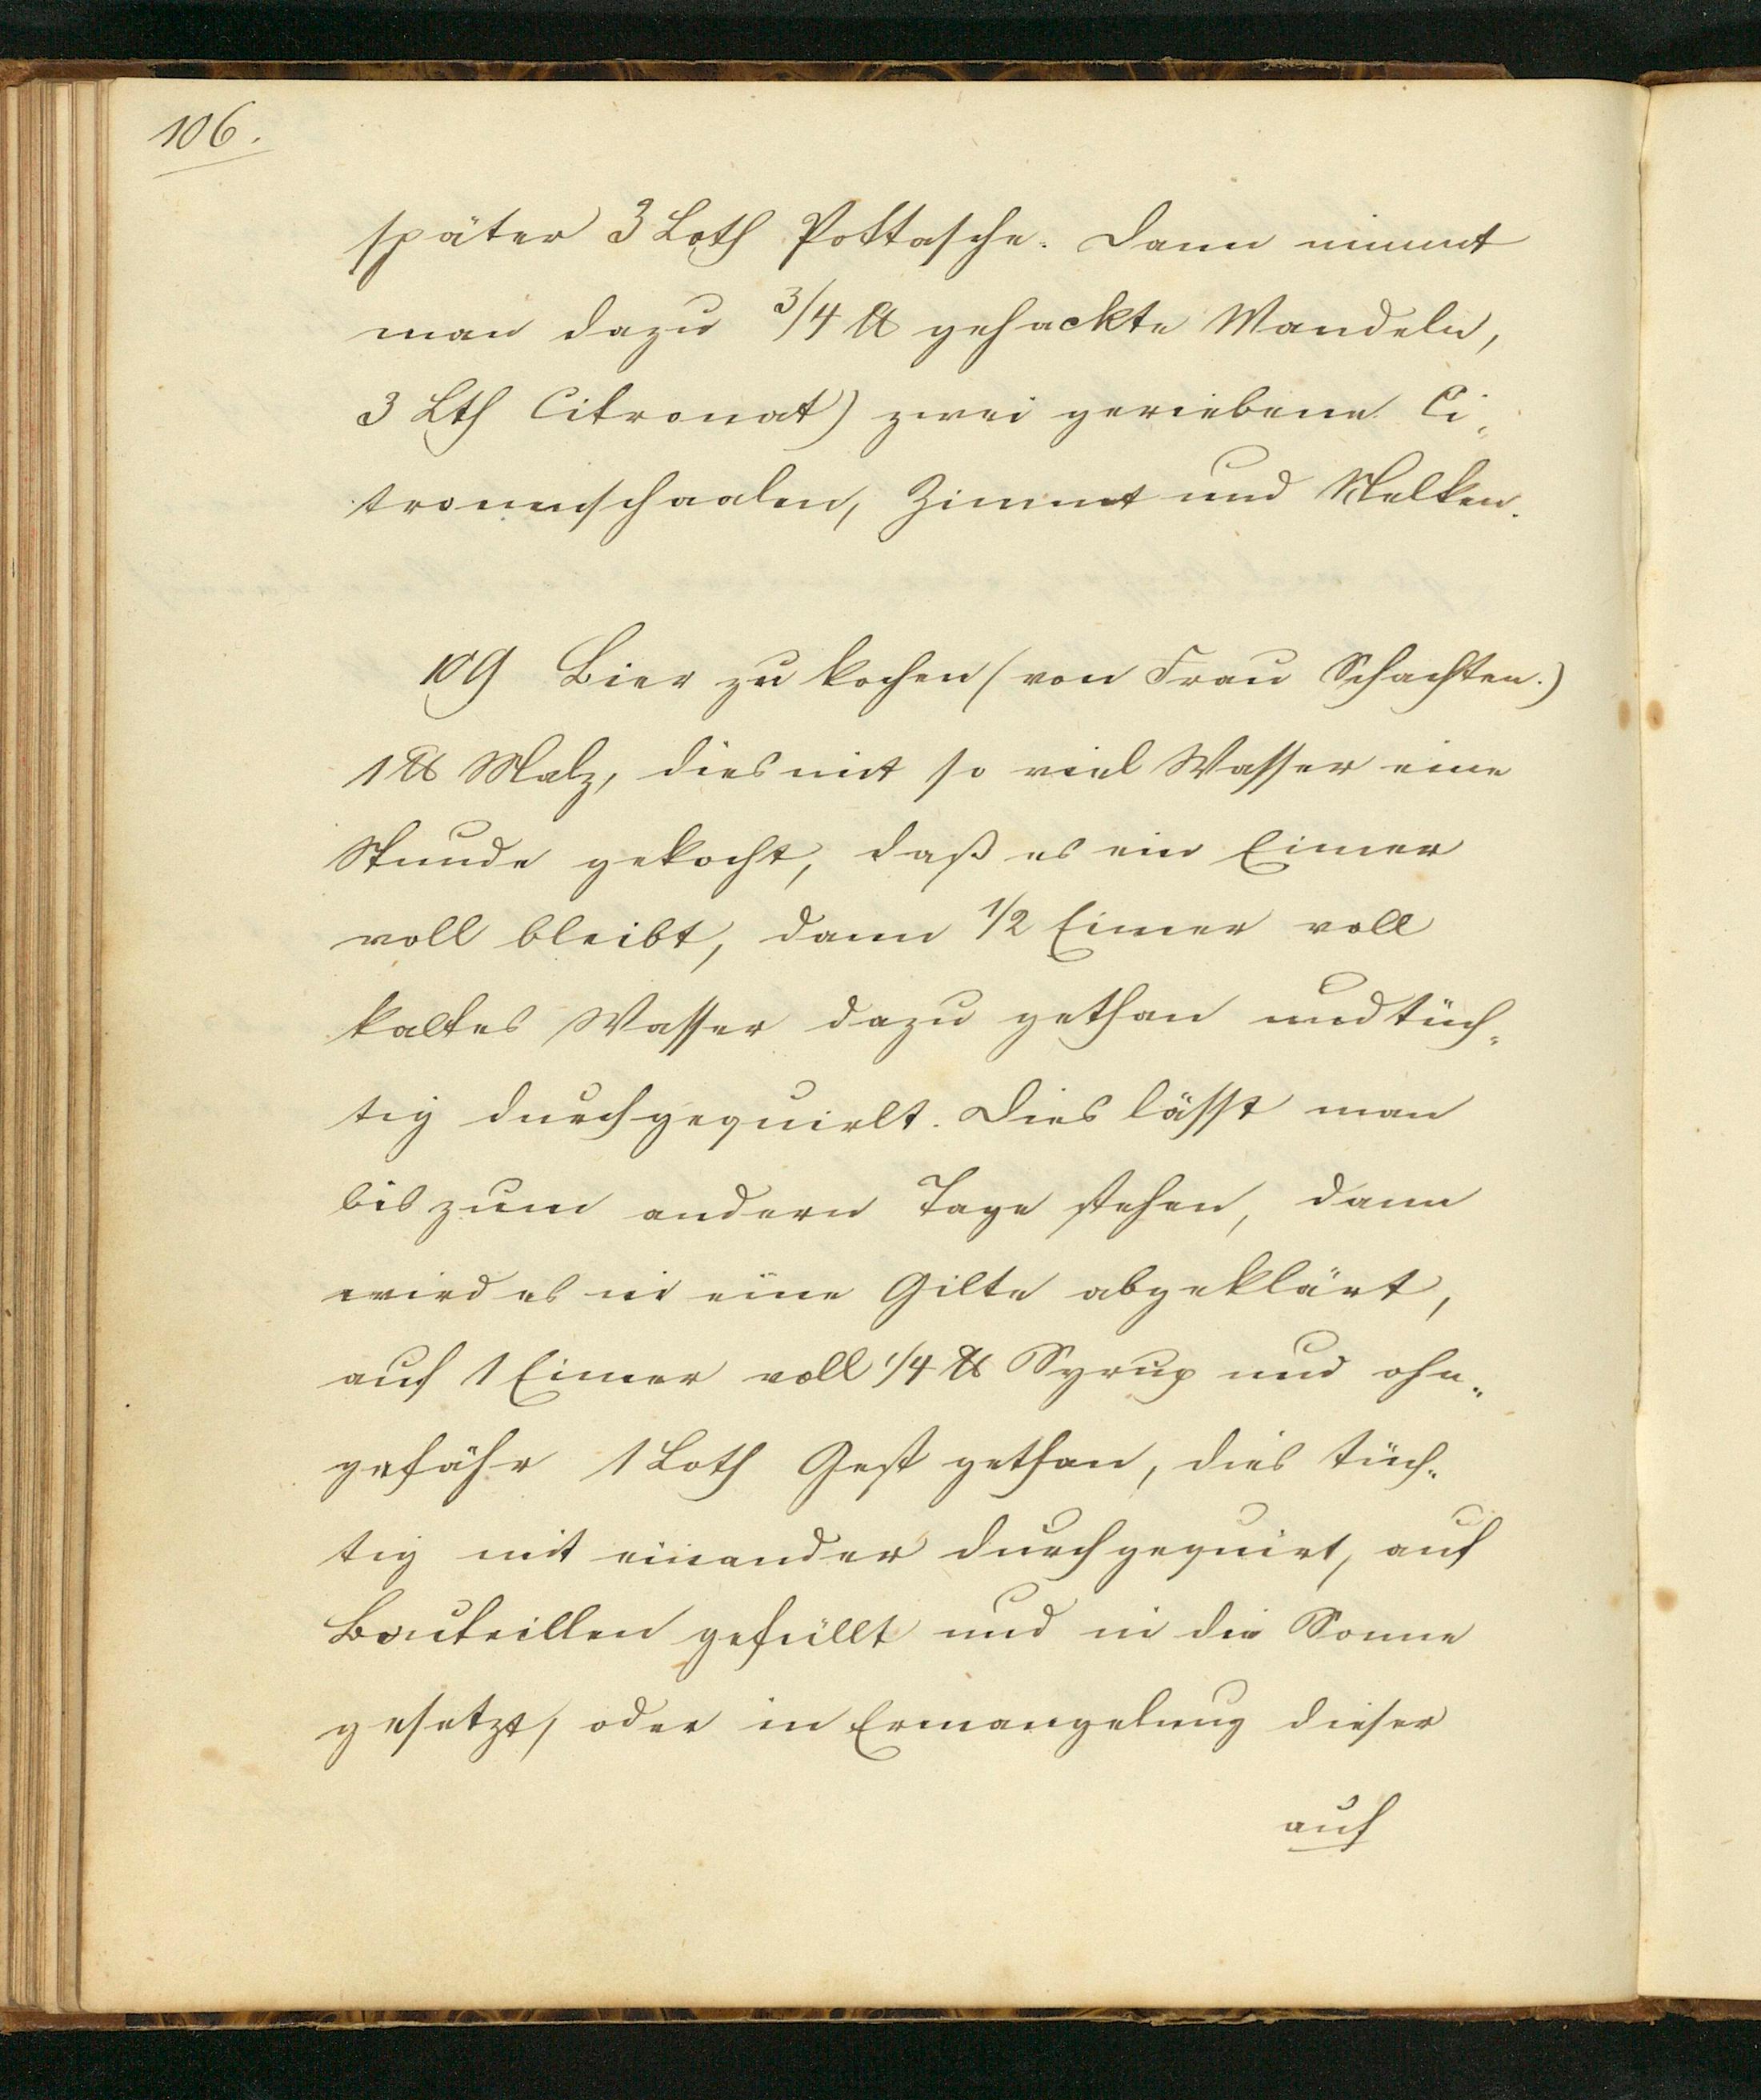 106.
später 3 Loth Pottasche. Dann nimmt
man dazu 3/4 ℔ gehackte Mandeln,
3 Lth Citronat) zwei geriebene Ci„
tronenschaalen, Zimmt und Nelken.
109 Bier zu kochen (von Frau Schachten.)
1 ℔ Malz, dies mit so viel Wasser eine
Stunde gekocht, daß es ein Eimer
voll bleibt, dann 1/2 Eimer voll
kaltes Wasser dazu gethan und tüch„
tig durchgequirlt. Dies lässt man
bis zum andern Tage stehen, dann
wird es in eine Gilte abgeklärt,
auf 1 Eimer voll 1/4 ℔ Syrup und ohn„
gefähr 1 Loth Gest gethan, dies tüch„
tig mit einander durchgequirt, auf
Bouteillen gefüllt und in die Sonne
gesetzt, oder in Ermangelung dieser
auf